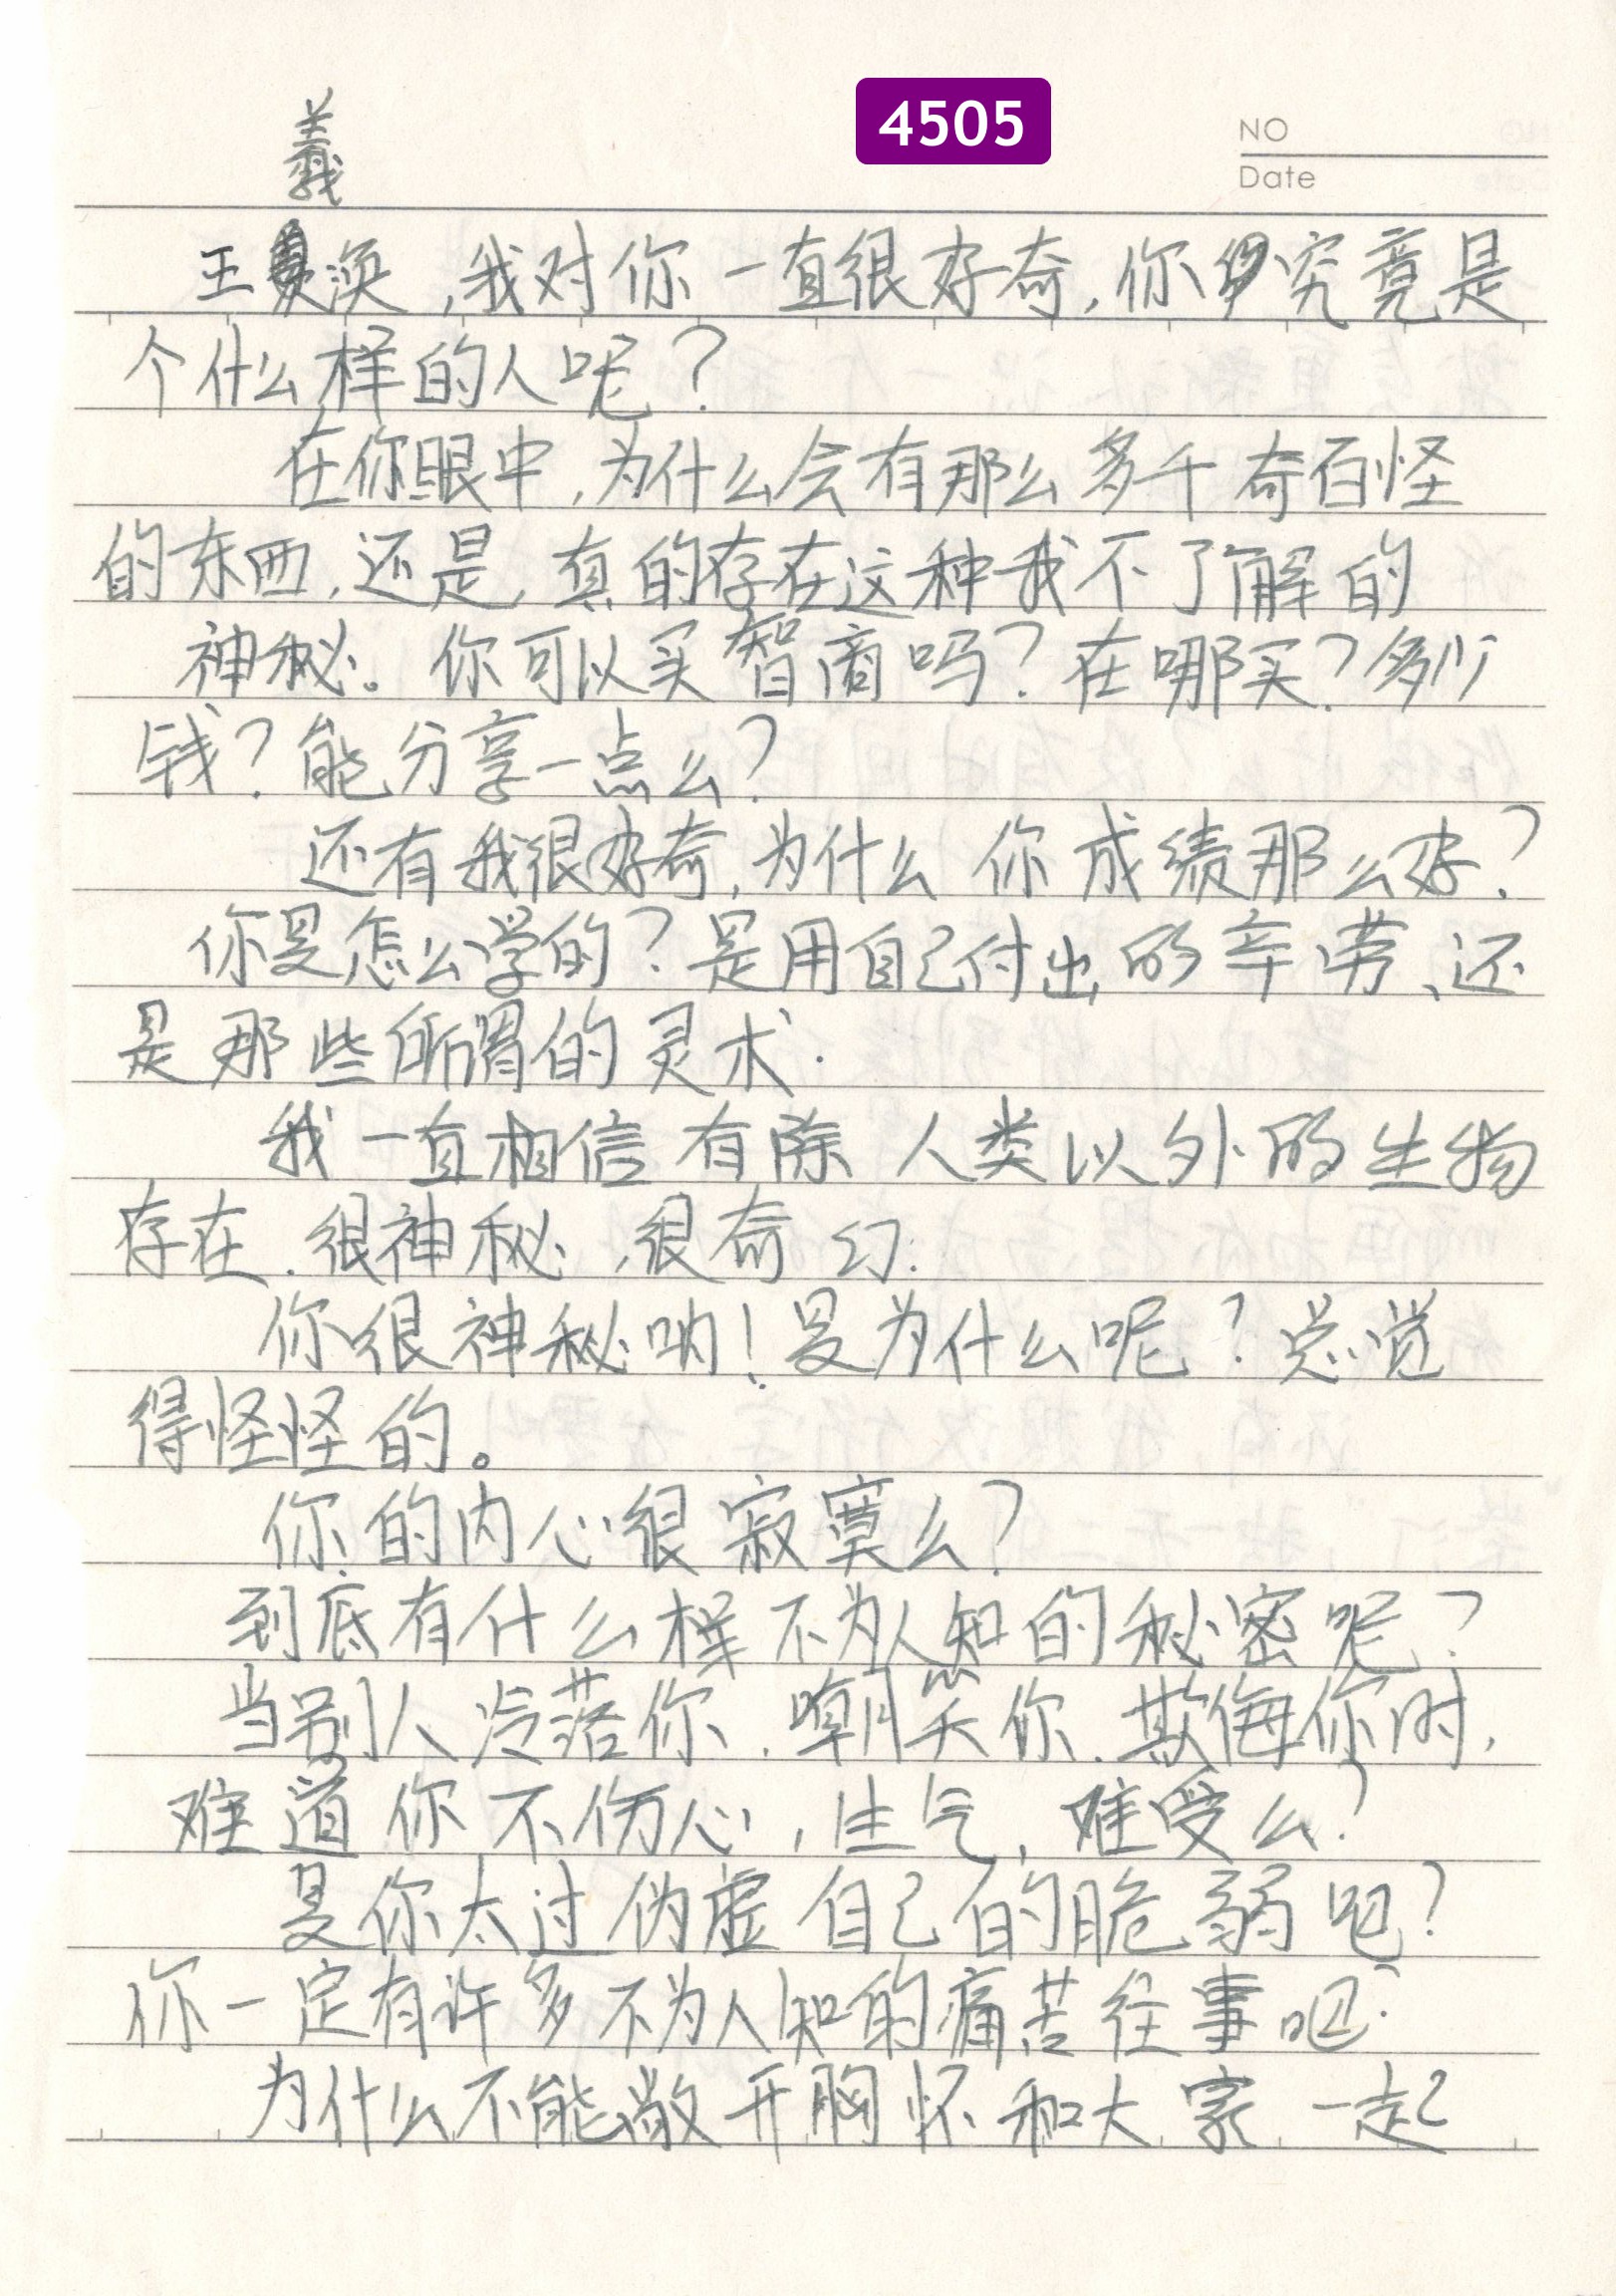 4505
NO
Date
義
王渙,我对你一直很好奇,你究竟是
个什么样的人呢?
在你眼中,为什么会有那么多千奇百怪
的东西,还是,真的存在这种我不了解的
神秘。你可以买智商吗?在哪买?多少
钱?能分享一点么?
还有我很好奇,为什么你成绩那么好?
你是怎么学的?是用自己付出的辛劳、还
是那些所谓的灵术.
我一直相信有除人类以外的生物
存在.很神秘,很奇幻.
你很神秘呐!是为什么呢?总觉
得怪怪的。
你的内心很寂寞么?
到底有什么样不为人知的秘密呢?
当别人冷落你、嘲笑你、欺侮你时,
难道你不伤心,生气,难受么?
是你太过伪虚自己的脆弱吧?
你一定有许多不为人知的痛苦往事吧.
为什么不能敞开胸怀和大家一起